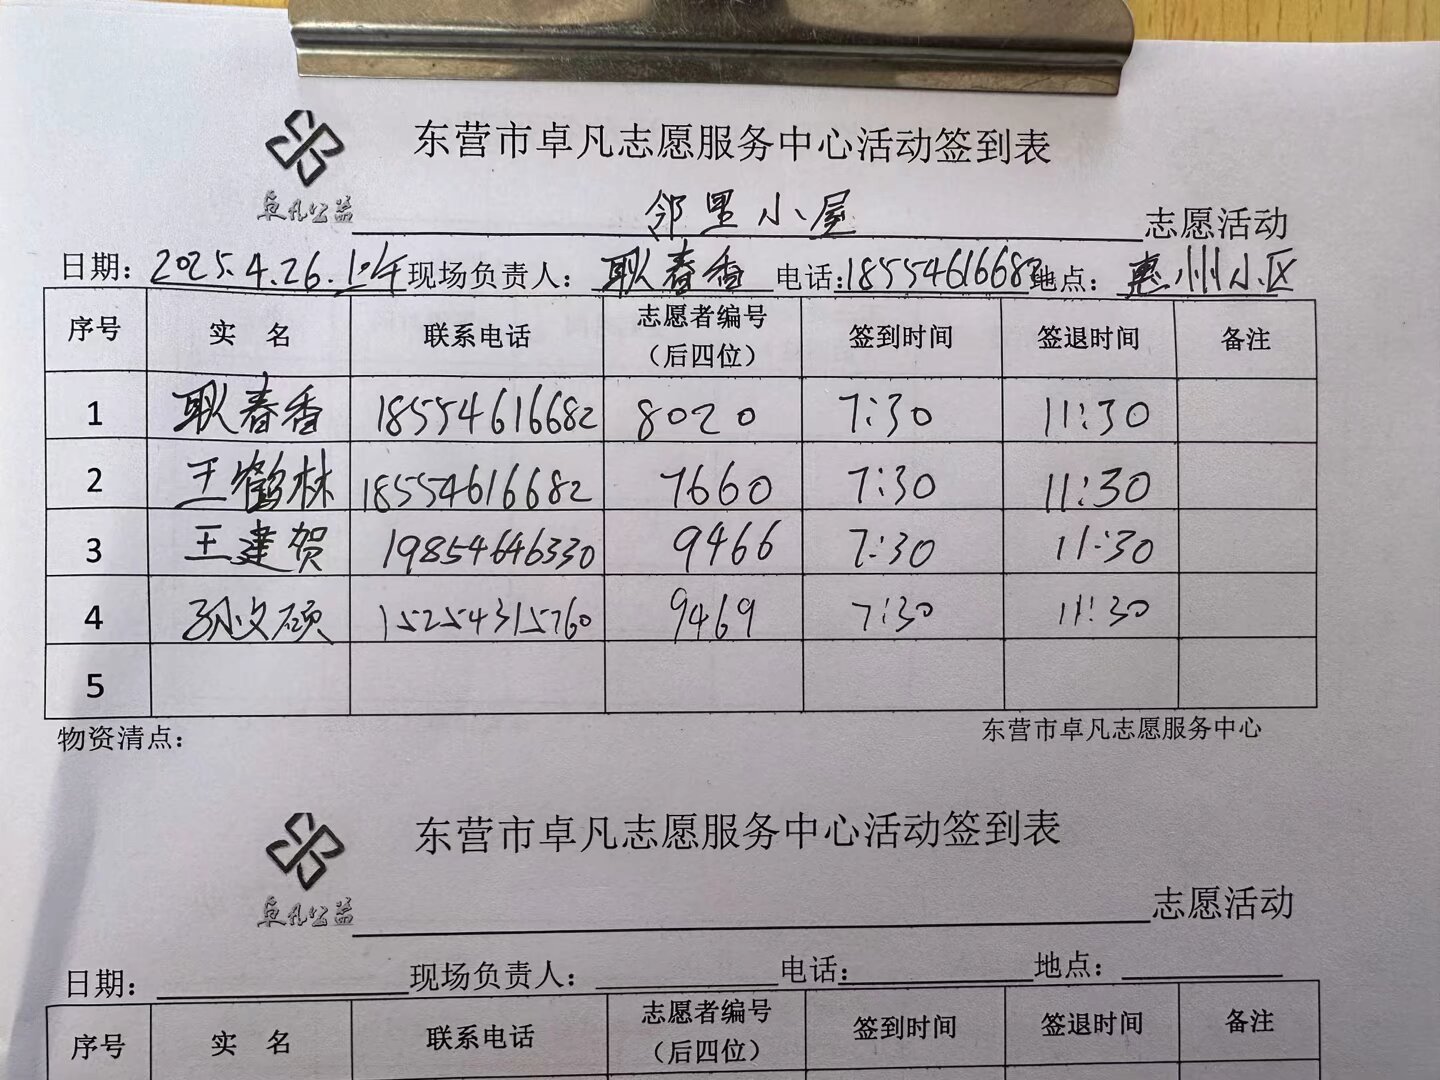 东营市卓凡志愿服务中心活动签到表
卓凡公益 邻里小屋 志愿活动
日期：2025.4.26.上午 现场负责人：耿春香 电话:18554616682 地点：惠州小区
序号 实 名 联系电话 志愿者编号（后四位） 签到时间 签退时间 备注
1 耿春香 18554616682 8020 7:30 11:30
2 王鹤林 18554616682 7660 7:30 11:30
3 王建贺 19854646330 9466 7:30 11:30
4 孙文硕 15254315760 9469 7:30 11:30
5
物资清点： 东营市卓凡志愿服务中心
东营市卓凡志愿服务中心活动签到表
卓凡公益 志愿活动
日期： 现场负责人： 电话: 地点：
序号 实 名 联系电话 志愿者编号（后四位） 签到时间 签退时间 备注